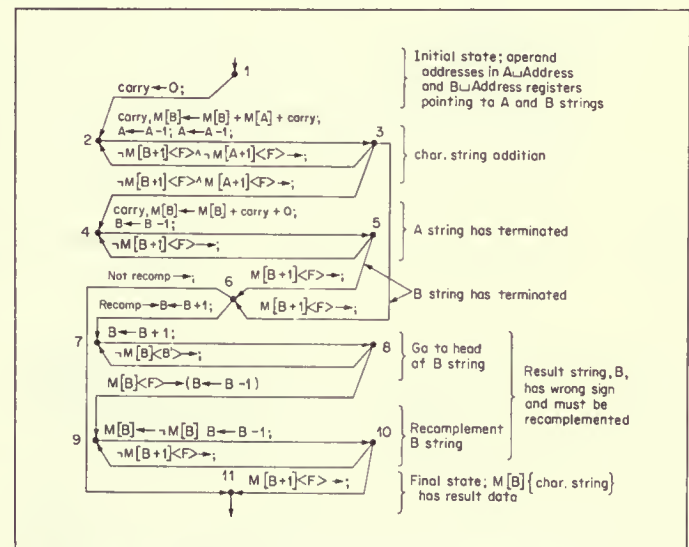 1
Initial state; operand
addresses in A⊔Address
and B⊔Address registers
pointing to A and B strings
carry←0;
carry, M[B]←M[B] + M[A] + carry;
A←A-1; A←A-1;
2
3
¬M[B+1]<F>∧¬M[A+1]<F>→;
char. string addition
¬M[B+1]<F>∧M[A+1]<F>→;
carry, M[B]←M[B] + carry + 0;
B←B-1;
4
5
¬M[B+1]<F>→;
A string has terminated
Not recomp→;
6
M[B+1]<F>→;
B string has terminated
Recomp→B←B+1;
M[B+1]<F>→;
7
B←B+1;
8
¬M[B]<B'>→;
Go to head
of B string
M[B]<F>→(B←B-1)
Result string, B,
has wrong sign
and must be
recomplemented
M[B]←¬M[B] B←B-1;
9
10
¬M[B+1]<F>→;
Recomplement
B string
11
M[B+1]<F>→;
Final state; M[B]{char. string}
has result data